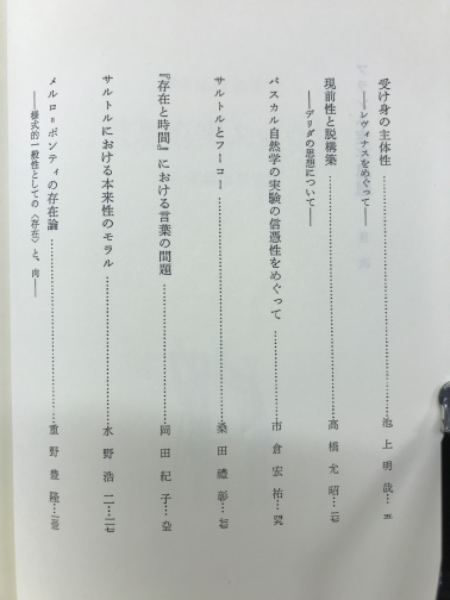 受け身の主体性……池上明哉…五
——レヴィナスをめぐって——
現前性と脱構築……高橋允昭…
——デリダの思想について——
パスカル自然学の実験の信憑性をめぐって……市倉宏祐…
サルトルとフーコー……桑田禮彰…
『存在と時間』における言葉の問題……岡田紀子…
サルトルにおける本来性のモラル……水野浩二…
メルロ=ポンティの存在論……重野豊隆…
——様式的一般性としての〈存在〉と、肉——